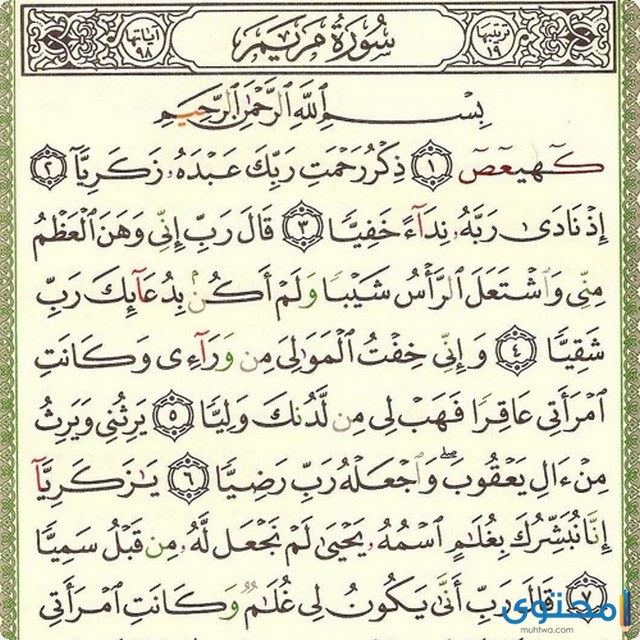 ترتيبها ١٩ سُورَةُ مَرْيَمَ آياتها ٩٨
بِسْمِ ٱللَّهِ ٱلرَّحْمَٰنِ ٱلرَّحِيمِ
كٓهيعٓصٓ ١ ذِكْرُ رَحْمَتِ رَبِّكَ عَبْدَهُۥ زَكَرِيَّآ ٢
إِذْ نَادَىٰ رَبَّهُۥ نِدَآءً خَفِيًّا ٣ قَالَ رَبِّ إِنِّى وَهَنَ ٱلْعَظْمُ
مِنِّى وَٱشْتَعَلَ ٱلرَّأْسُ شَيْبًا وَلَمْ أَكُنۢ بِدُعَآئِكَ رَبِّ
شَقِيًّا ٤ وَإِنِّى خِفْتُ ٱلْمَوَٰلِىَ مِن وَرَآءِى وَكَانَتِ
ٱمْرَأَتِى عَاقِرًا فَهَبْ لِى مِن لَّدُنكَ وَلِيًّا ٥ يَرِثُنِى وَيَرِثُ
مِنْ ءَالِ يَعْقُوبَ ۖ وَٱجْعَلْهُ رَبِّ رَضِيًّا ٦ يَٰزَكَرِيَّآ
إِنَّا نُبَشِّرُكَ بِغُلَٰمٍ ٱسْمُهُۥ يَحْيَىٰ لَمْ نَجْعَل لَّهُۥ مِن قَبْلُ سَمِيًّا
٧ قَالَ رَبِّ أَنَّىٰ يَكُونُ لِى غُلَٰمٌ وَكَانَتِ ٱمْرَأَتِى
محتوى
muhtwa.com